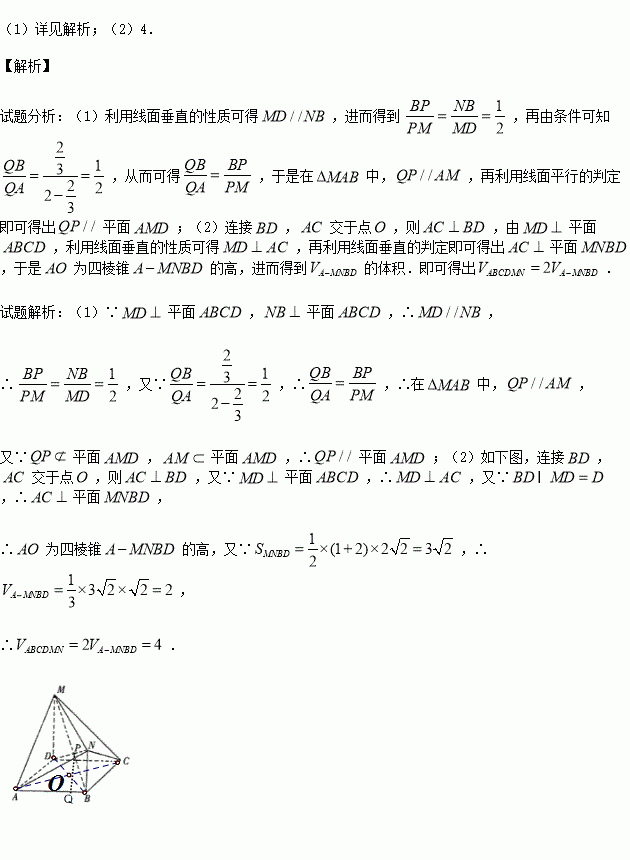 (1)详见解析;(2)4.
【解析】
试题分析:(1)利用线面垂直的性质可得 MD//NB ,进而得到 BP/PM = NB/MD = 1/2 ,再由条件可知
QB/QA = (2/3)/(2-2/3) = 1/2 ,从而可得 QB/QA = BP/PM ,于是在 ΔMAB 中, QP//AM ,再利用线面平行的判定
即可得出 QP// 平面 AMD ;(2)连接 BD , AC 交于点 O ,则 AC⊥BD ,由 MD⊥ 平面
ABCD ,利用线面垂直的性质可得 MD⊥AC ,再利用线面垂直的判定即可得出 AC⊥ 平面 MNBD
,于是 AO 为四棱锥 A-MNBD 的高,进而得到 V_{A-MNBD} 的体积.即可得出 V_{ABCDMN} = 2V_{A-MNBD} .
试题解析:(1)∵ MD⊥ 平面 ABCD , NB⊥ 平面 ABCD ,∴ MD//NB ,
∴ BP/PM = NB/MD = 1/2 ,又∵ QB/QA = (2/3)/(2-2/3) = 1/2 ,∴ QB/QA = BP/PM ,∴在 ΔMAB 中, QP//AM ,
又∵ QP⊄ 平面 AMD , AM⊂ 平面 AMD ,∴ QP// 平面 AMD ;(2)如下图,连接 BD ,
AC 交于点 O ,则 AC⊥BD ,又∵ MD⊥ 平面 ABCD ,∴ MD⊥AC ,又∵ BD I MD = D
,∴ AC⊥ 平面 MNBD ,
∴ AO 为四棱锥 A-MNBD 的高,又∵ S_{MNBD} = 1/2×(1+2)×2√2 = 3√2 ,∴
V_{A-MNBD} = 1/3×3√2×√2 = 2 ,
∴ V_{ABCDMN} = 2V_{A-MNBD} = 4 .
M
P N
D C
O
A Q B